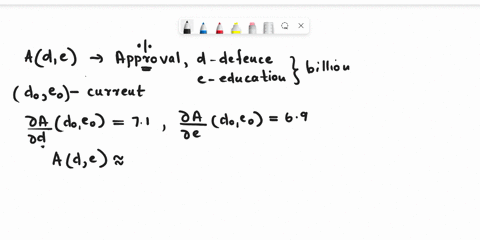 %
A(d,e) → Approval, d-defence
e-education } billion
(d₀,e₀)- current
∂A/∂d (d₀,e₀) = 7.1 , ∂A/∂e (d₀,e₀) = 6.9
A(d,e) ≈